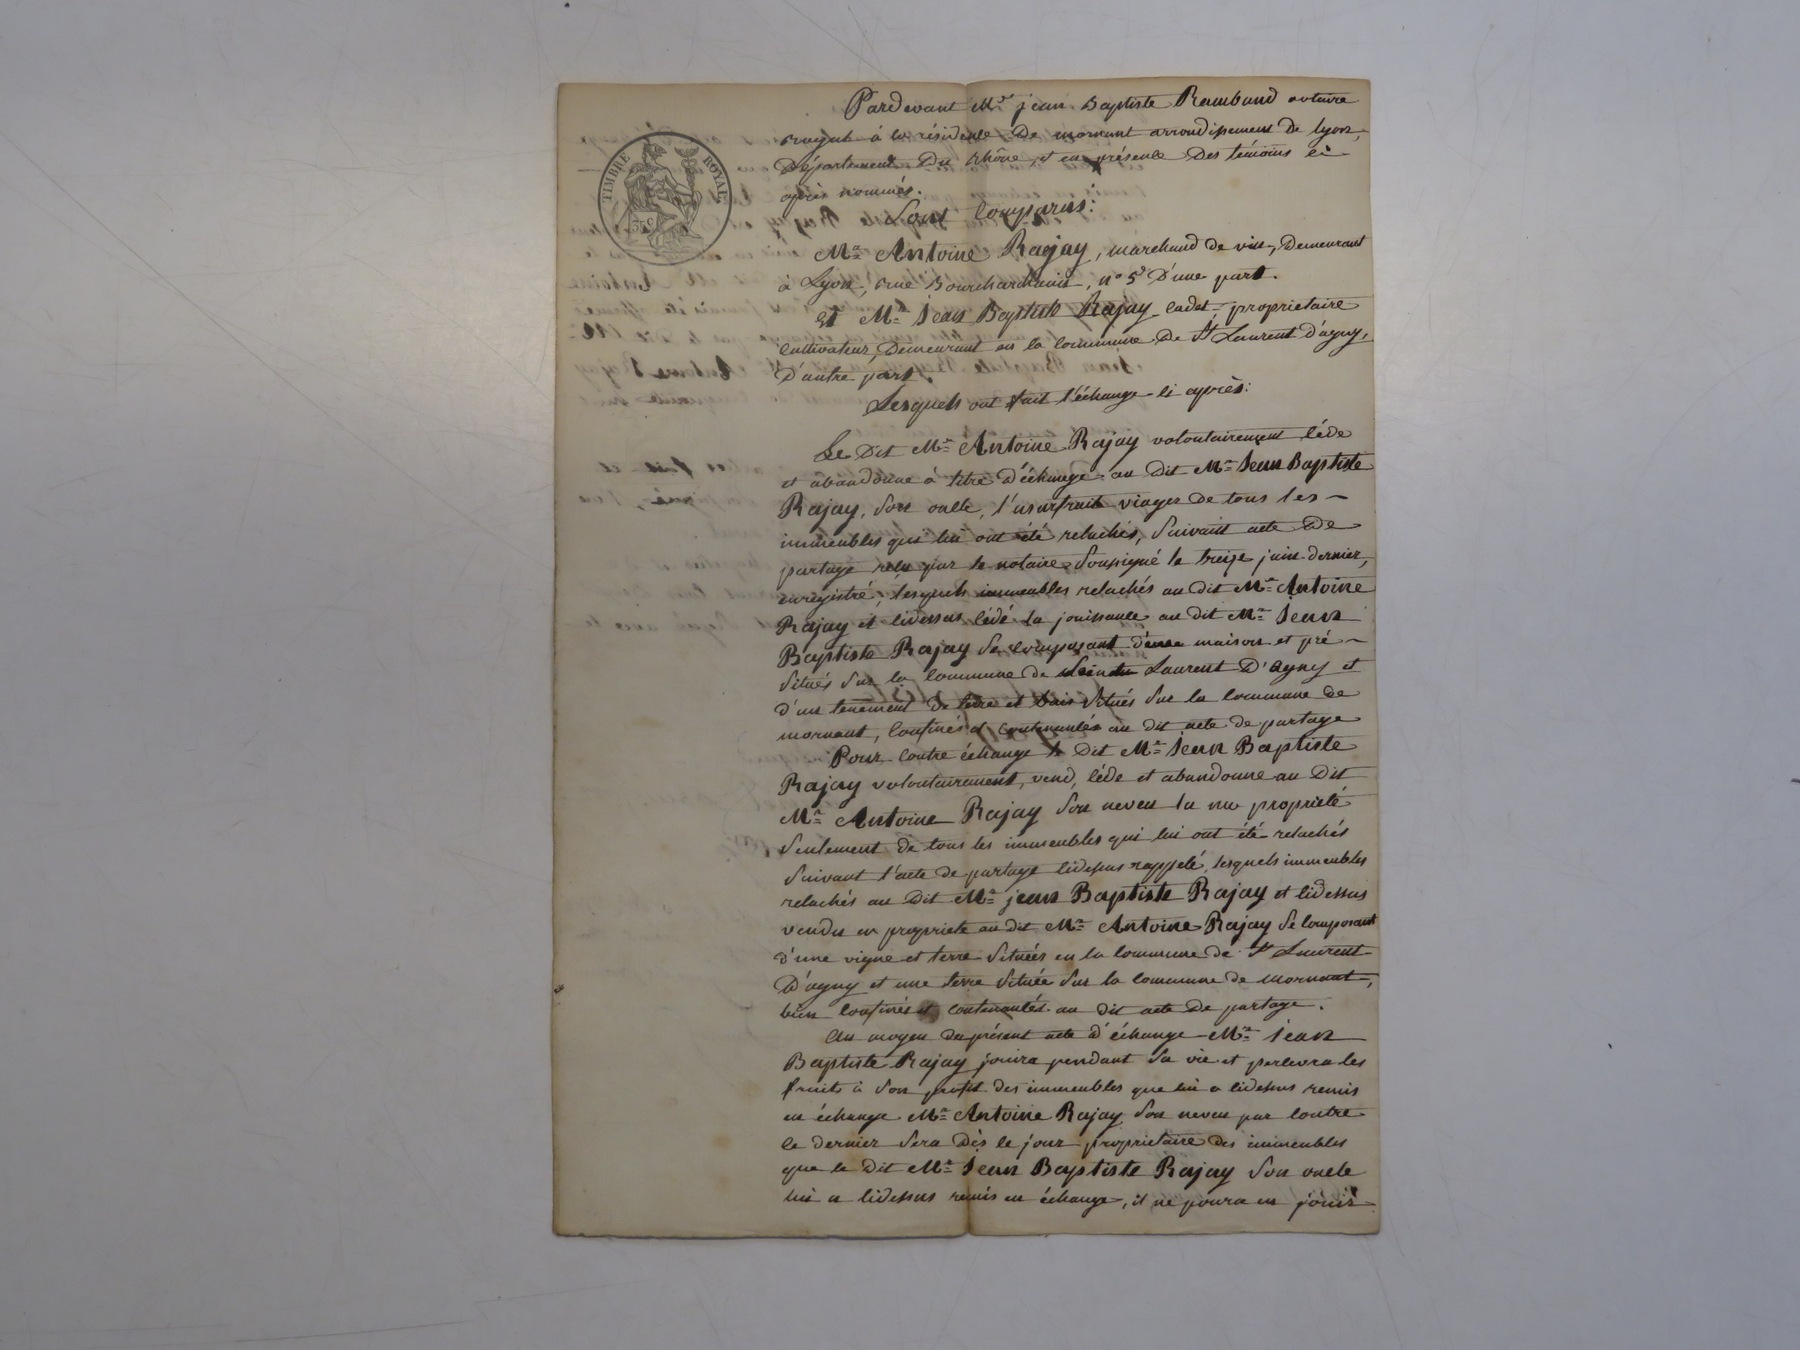 TIMBRE ROYAL
35 C
Pardevant Mr. jean Baptiste Rambaud notaire
royal à la résidence De mornant arrondissement de lyon,
Département Du Rhône, et en présence Des témoins ci
après nommés.
Sont Comparus:
Mr. Antoine Rajay, marchand de vin, Demeurant
à Lyon, rue Bourchardhanin, n° 5 D'une part.
Et Mr. Jean Baptiste Rajay cadet propriétaire
cultivateur, Demeurant en la commune De St Laurent d'agny,
D'autre part.
Lesquels ont fait l'échange ci après:
Le Dit Mr. Antoine Rajay volontairement cède
et abandonne à titre d'échange au Dit Mr. Jean Baptiste
Rajay, son oncle, l'usufruit viager de tous les
immeubles qui lui ont été relachés, suivant acte De
partage reçu par le notaire soussigné le treize juin dernier,
enregistré, lesquels immeubles relachés au Dit Mr. Antoine
Rajay et cidessus cédé la jouissance au dit Mr. Jean
Baptiste Rajay se composant d'une maison et pré
situés sur la commune de Laurent D'agny et
d'un tenement De terre et bois situés sur la commune de
mornant, confinés et contenantés au dit acte de partage
Pour contre échange le Dit Mr. Jean Baptiste
Rajay volontairement, vend, cède et abandonne au Dit
Mr. Antoine Rajay son neveu la nue propriété
seulement de tous les immeubles qui lui ont été relachés
suivant l'acte de partage cidessus rappelé, lesquels immeubles
relachés au Dit Mr. jean Baptiste Rajay et cidessus
vendu en propriete au dit Mr. Antoine Rajay se composant
d'une vigne et terre situées en la commune de St Laurent
D'agny et une terre située sur la commune de mornant,
bien confinés et contenantés au dit acte De partage.
Au moyen du présent acte d'échange Mr. Jean
Baptiste Rajay jouira pendant sa vie et percevra les
fruits à son profit des immeubles que lui a cidessus remis
en échange Mr. Antoine Rajay son neveu par contre
ce dernier sera Dès ce jour propriétaire des immeubles
que le Dit Mr. Jean Baptiste Rajay son oncle
lui a cidessus remis en échange, il ne poura en jouir